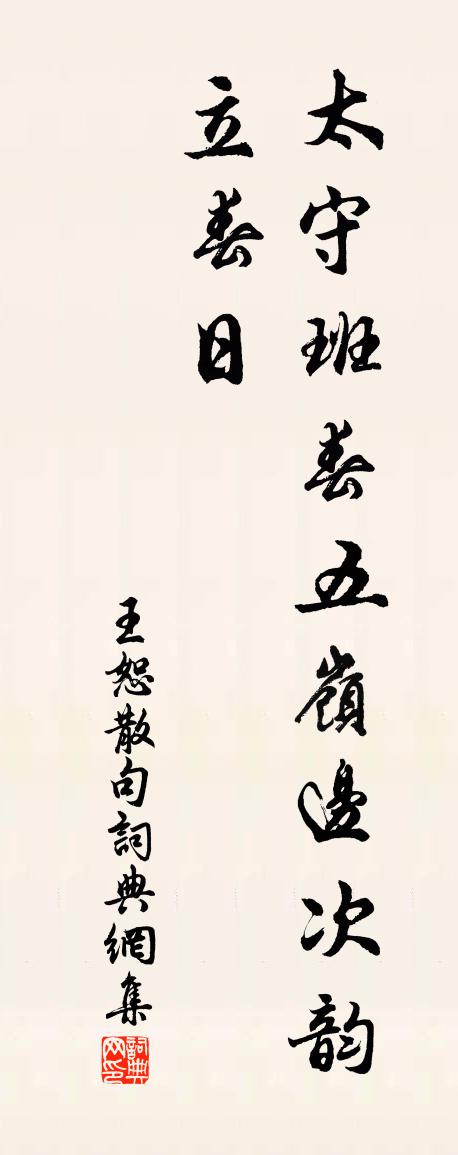 太守班春五嶺邊次韵
立春日
王恕散句詞典網集
詞典網印